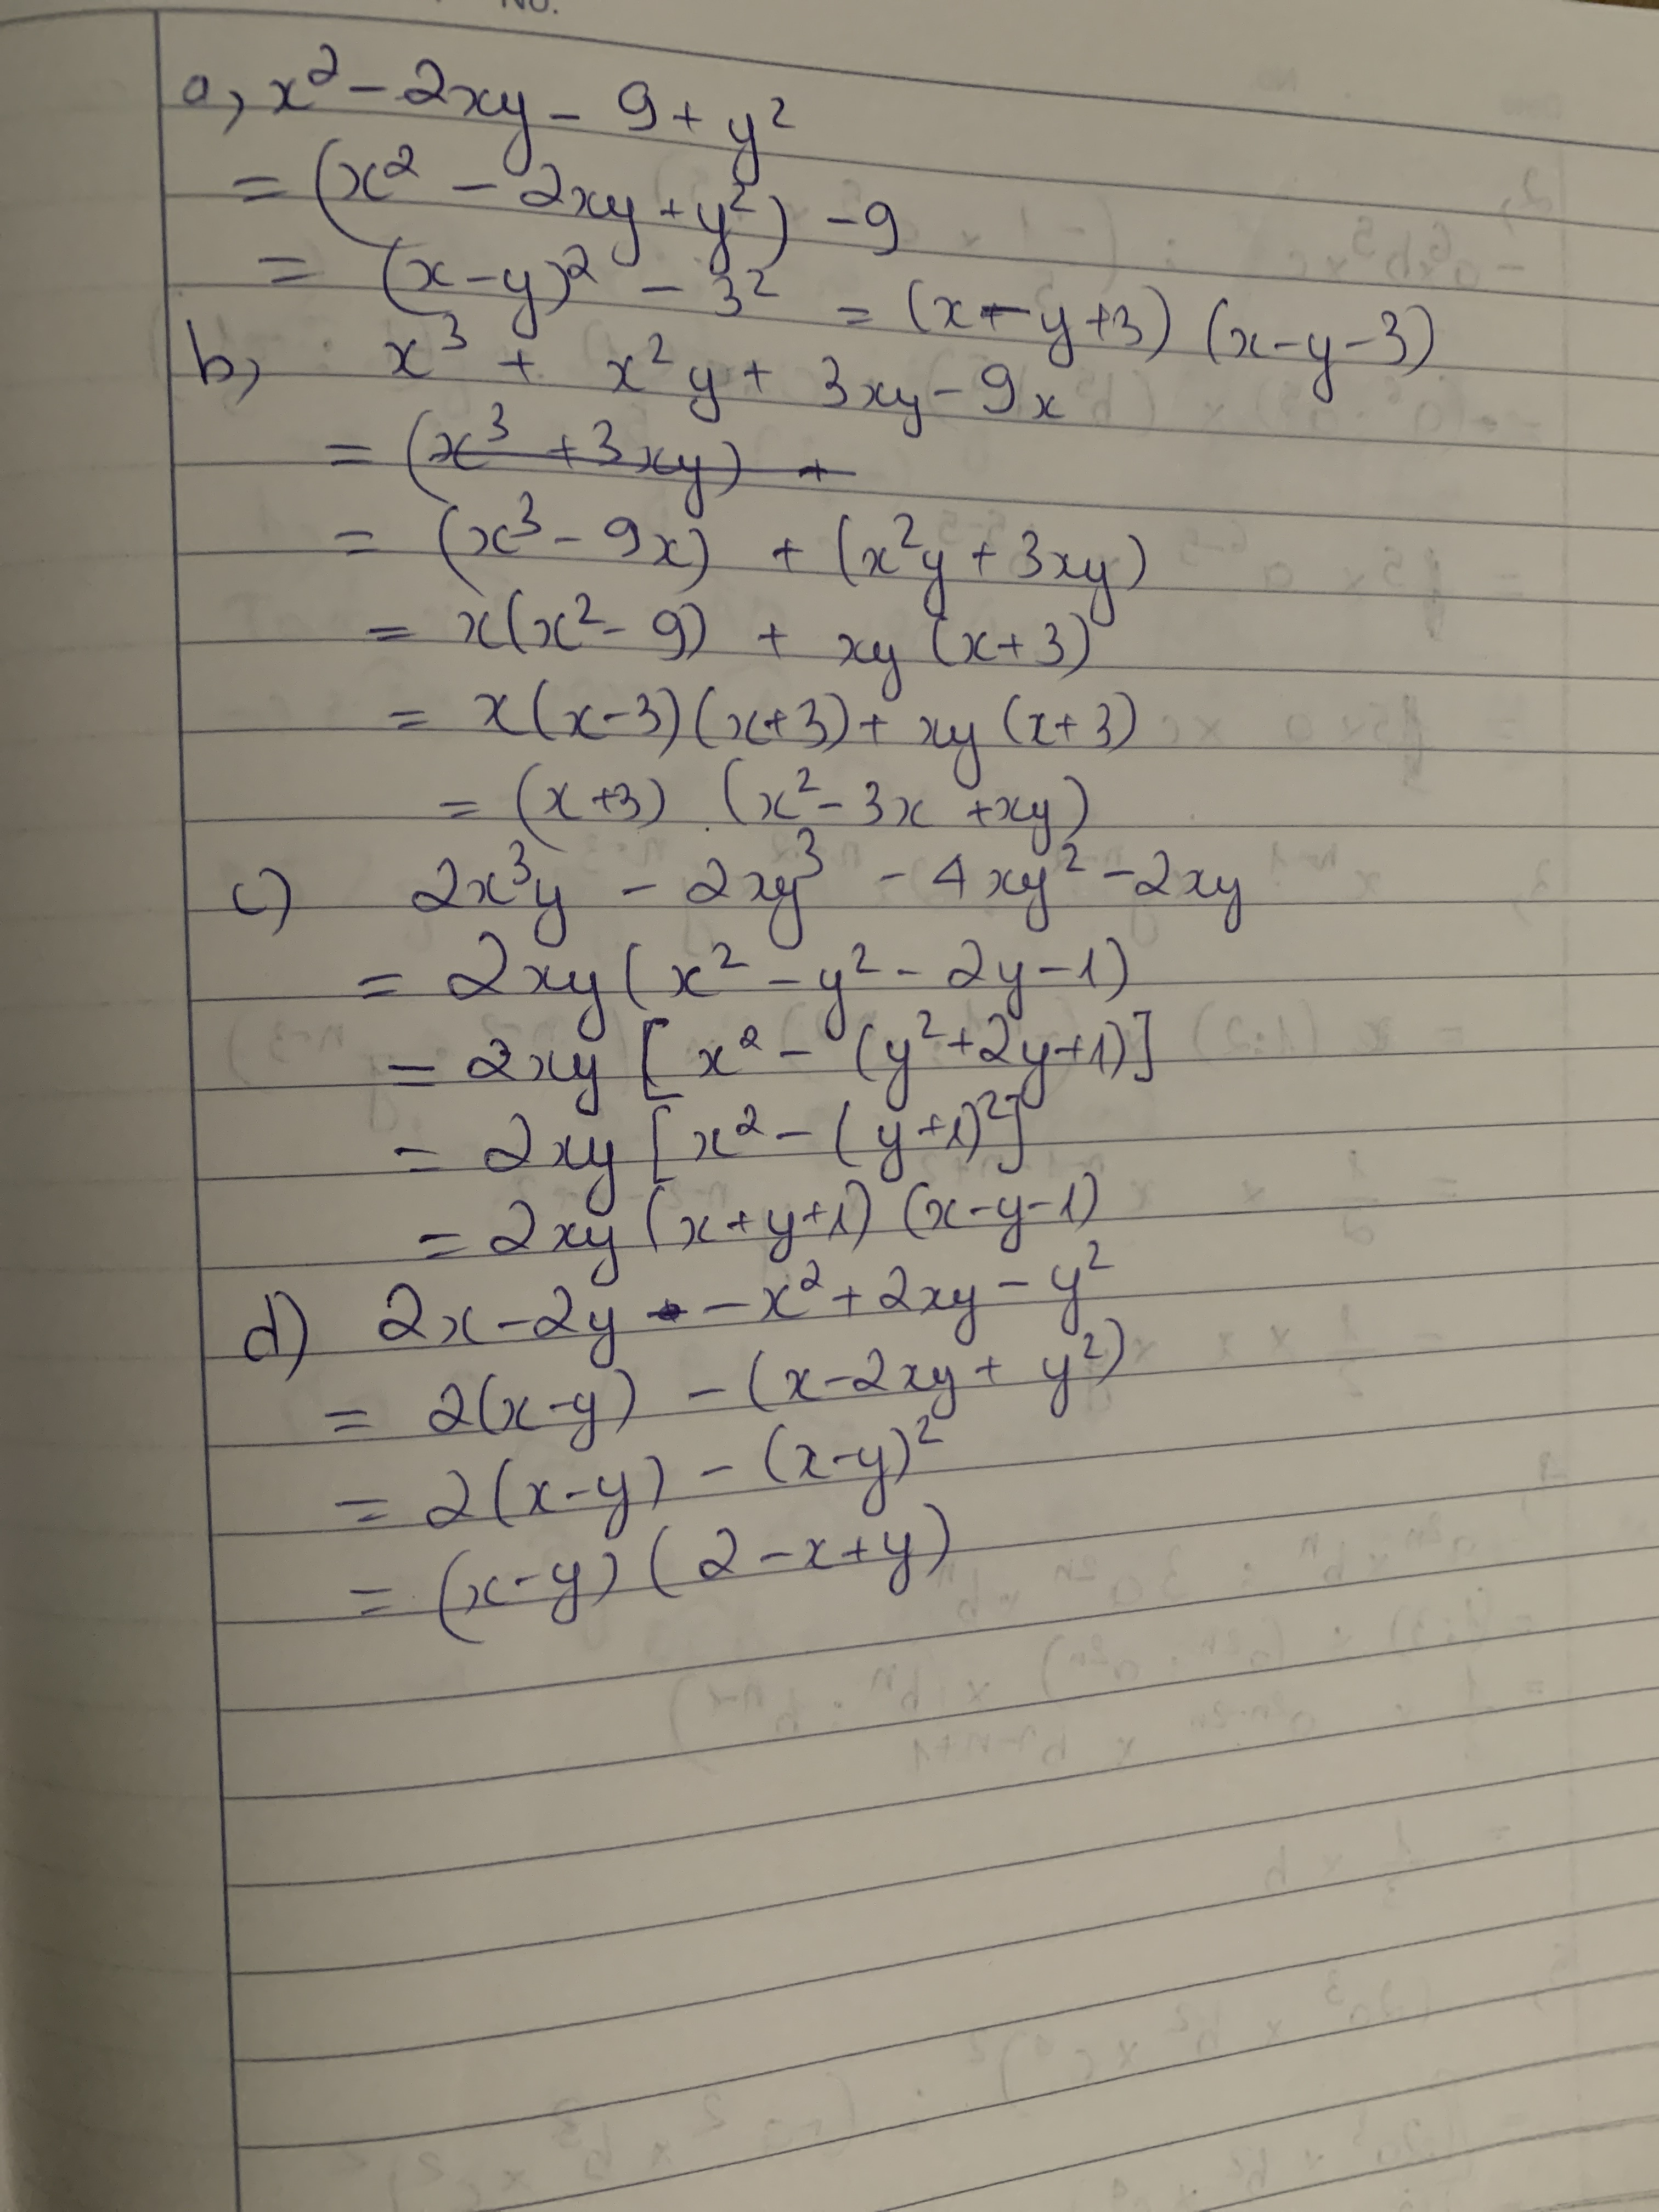 No.
a, x² - 2xy - 9 + y²
= (x² - 2xy + y²) - 9
= (x-y)² - 3² = (x-y+3) (x-y-3)
b, x³ + x²y + 3xy - 9x
= (x³ + 3xy) +
= (x³ - 9x) + (x²y + 3xy)
= x(x² - 9) + xy (x+3)
= x(x-3)(x+3) + xy (x+3)
= (x+3) . (x² - 3x + xy)
c) 2x³y - 2xy³ - 4xy² - 2xy
= 2xy (x² - y² - 2y - 1)
= 2xy [x² - (y² + 2y + 1)]
= 2xy [x² - (y+1)²]
= 2xy (x+y+1) (x-y-1)
d) 2x - 2y - x² + 2xy - y²
= 2(x-y) - (x - 2xy + y²)
= 2(x-y) - (x-y)²
= (x-y) (2 - x + y)